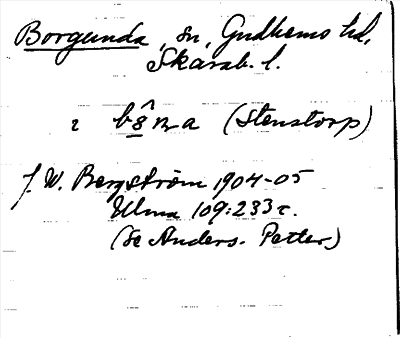 Borgunda, sn, Gudhems hd,
Skarab. l.
(Stenstorp)
J. W. Bergström 1904-05
Ulma 109:233 r.
(se Anders-Petter)